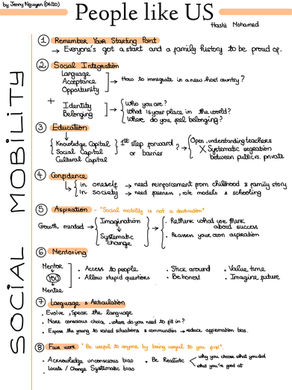 by Jenny Nguyen
People like US
Hashi Mohamed
SOCIAL MOBILITY
① Remember Your Starting Point
→ Everyone's got a start and a family history to be proud of.
② Social Integration
Language
Acceptance
Opportunity
→ How to immigrate in a new host country?
+
Identity
Belonging
Who you are?
What is your place in the world?
Where do you feel belonging?
③ Education
Knowledge Capital
Social Capital
Cultural Capital
1st step forward or barrier ?
Open, understanding teachers
X Systematic segregation
between public vs. private
④ Confidence
in oneself → need reinforcement from childhood & family story
in society → need passion, role models & schooling
⑤ Aspiration - "Social mobility is not a destination"
Growth mindset →
Imagination
Systematic
change
→ Rethink what we think
about success
→ Reaven your own aspiration
⑥ Mentoring
Mentor
YOU
Mentee
• Access to people
• Allow stupid questions
• Stick around
• Be honest
• Value time
• Imagine future
⑦ Language & Articulation
• Evolve, speak the language
• Make conscious choice, where do you need to fit in?
• Expose the young to varied situations & communities → reduce aggression bias
⑧ "Be useful to anyone by being useful to you first"
• Acknowledge unconscious bias
• Change Systematic bias
• Be Realistic
why you chose what you did
what you're good at